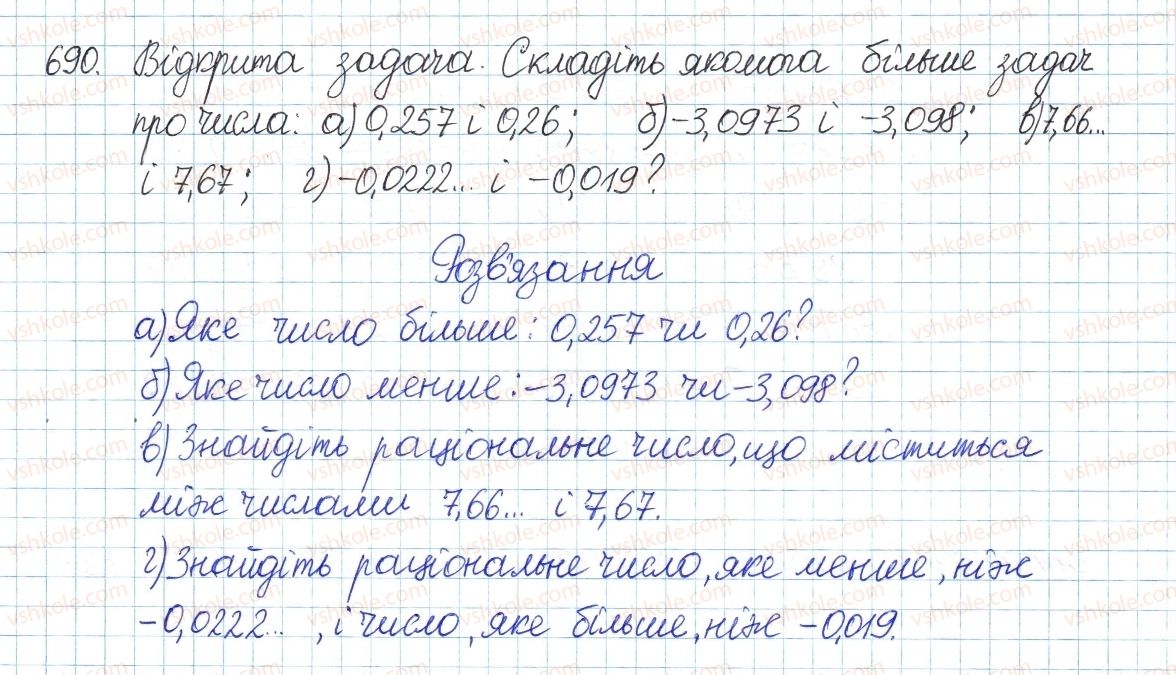 690. Відкрита задача. Складіть якомога більше задач
про числа: а) 0,257 і 0,26; б) -3,0973 і -3,098; в) 7,66...
і 7,67; г) -0,0222... і -0,019?
Розв'язання
а) Яке число більше: 0,257 чи 0,26?
б) Яке число менше: -3,0973 чи -3,098?
в) Знайдіть раціональне число, що міститься
між числами 7,66... і 7,67.
г) Знайдіть раціональне число, яке менше, ніж
-0,0222..., і число, яке більше, ніж -0,019.